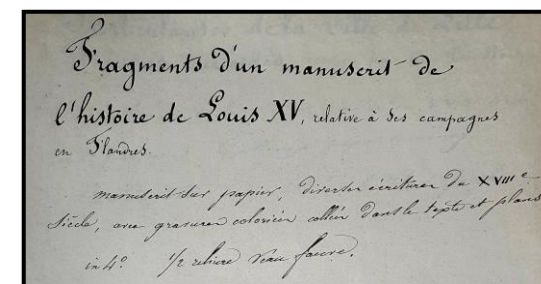 Fragments d'un manuscrit de
l'histoire de Louis XV, relative à ses campagnes
en Flandres.
manuscrit sur papier, diverses écritures du XVIIIe
siècle, avec gravures coloriées collées dans le texte et plans
in 4º. 1/2 reliure veau fauve.